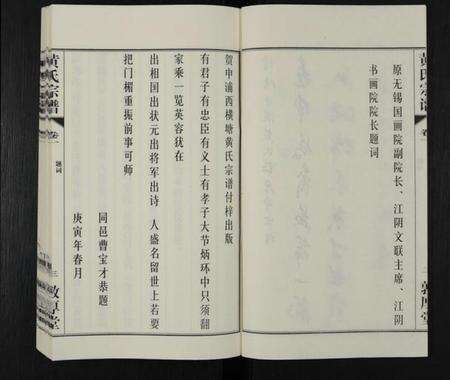 黄氏宗谱
卷一
二
敦厚堂
原无锡国画院副院长、江阴文联主席、江阴
书画院院长题词
贺申浦西横塘黄氏宗谱付梓出版
有君子有忠臣有义士有孝子大节炳环中只须翻
家乘一览英容犹在
出相国出状元出将军出诗 人盛名留世上若要
把门楣重振前事可师
同邑曹宝才恭题
庚寅年春月
黄氏宗谱
卷一
题词
三
敦厚堂